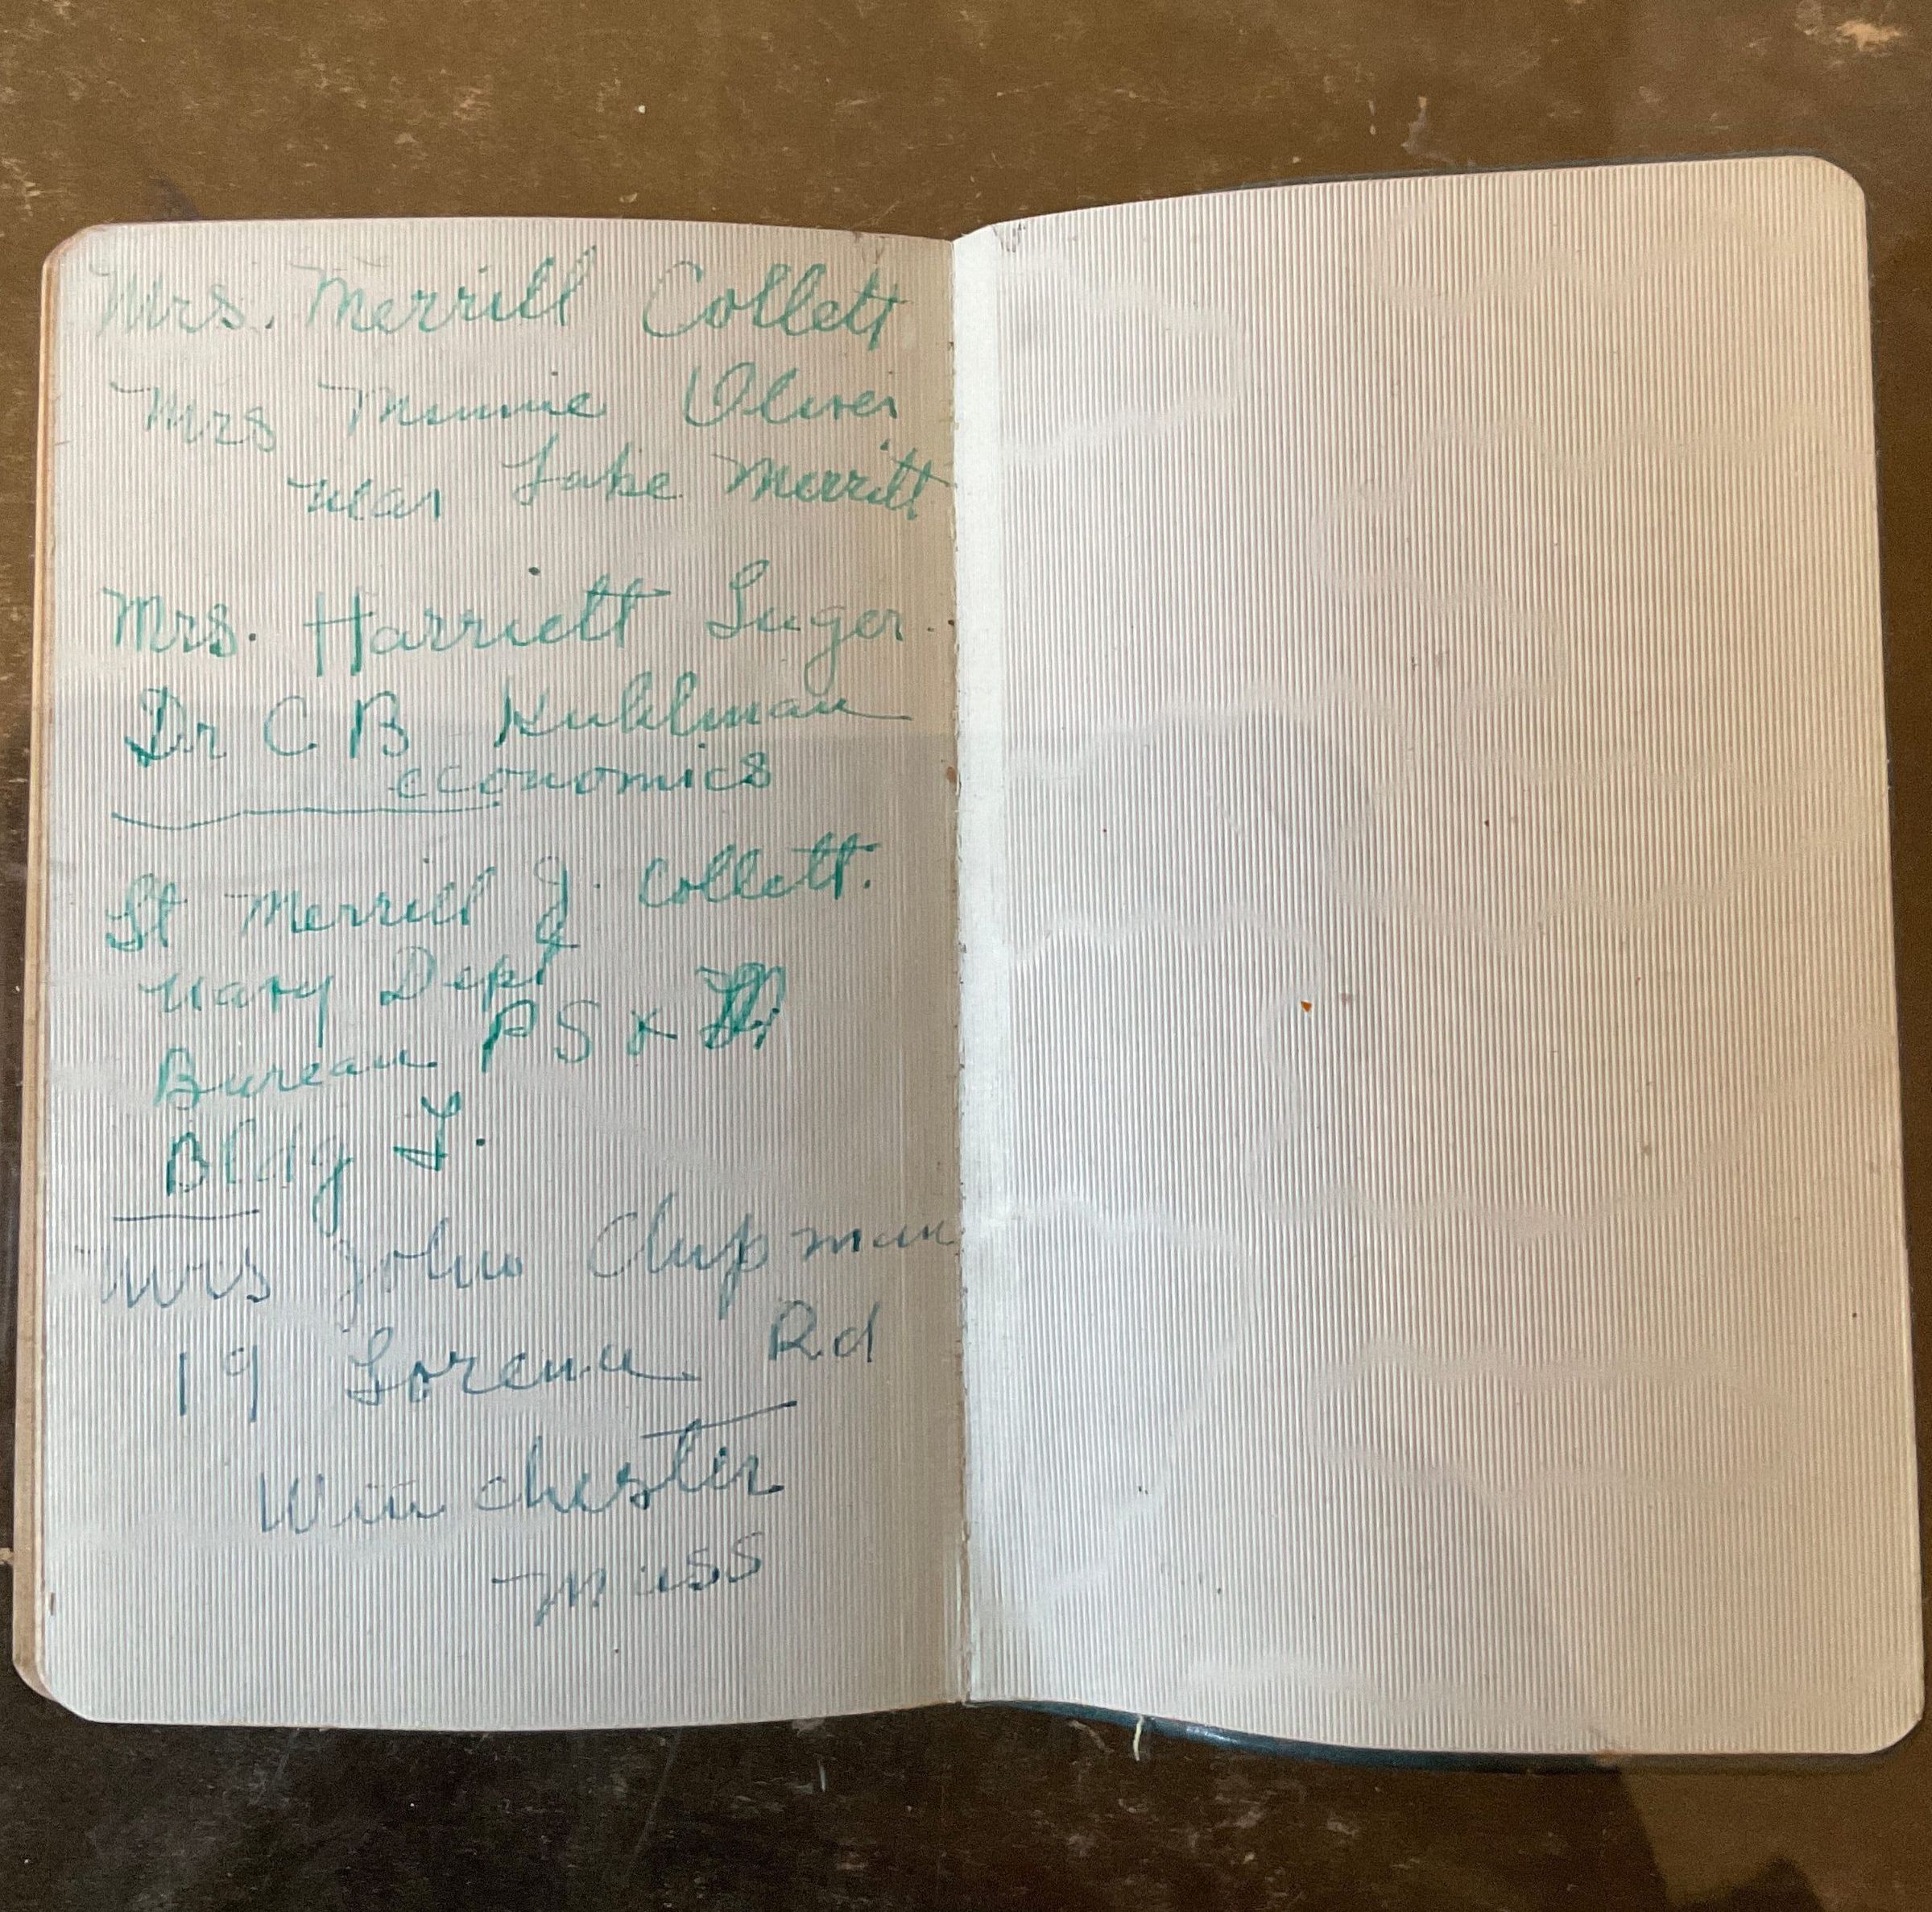 Mrs. Merrill Collett
Mrs Minnie Oliver
near Lake Merritt
Mrs. Harriett Luger.
Dr C B Kuhlman
economics
Lt Merrill J. Collett.
Navy Dept
Bureau P S &
Bldg I.
Mrs John Chipman
19 Lorena Rd
Winchester
Mass